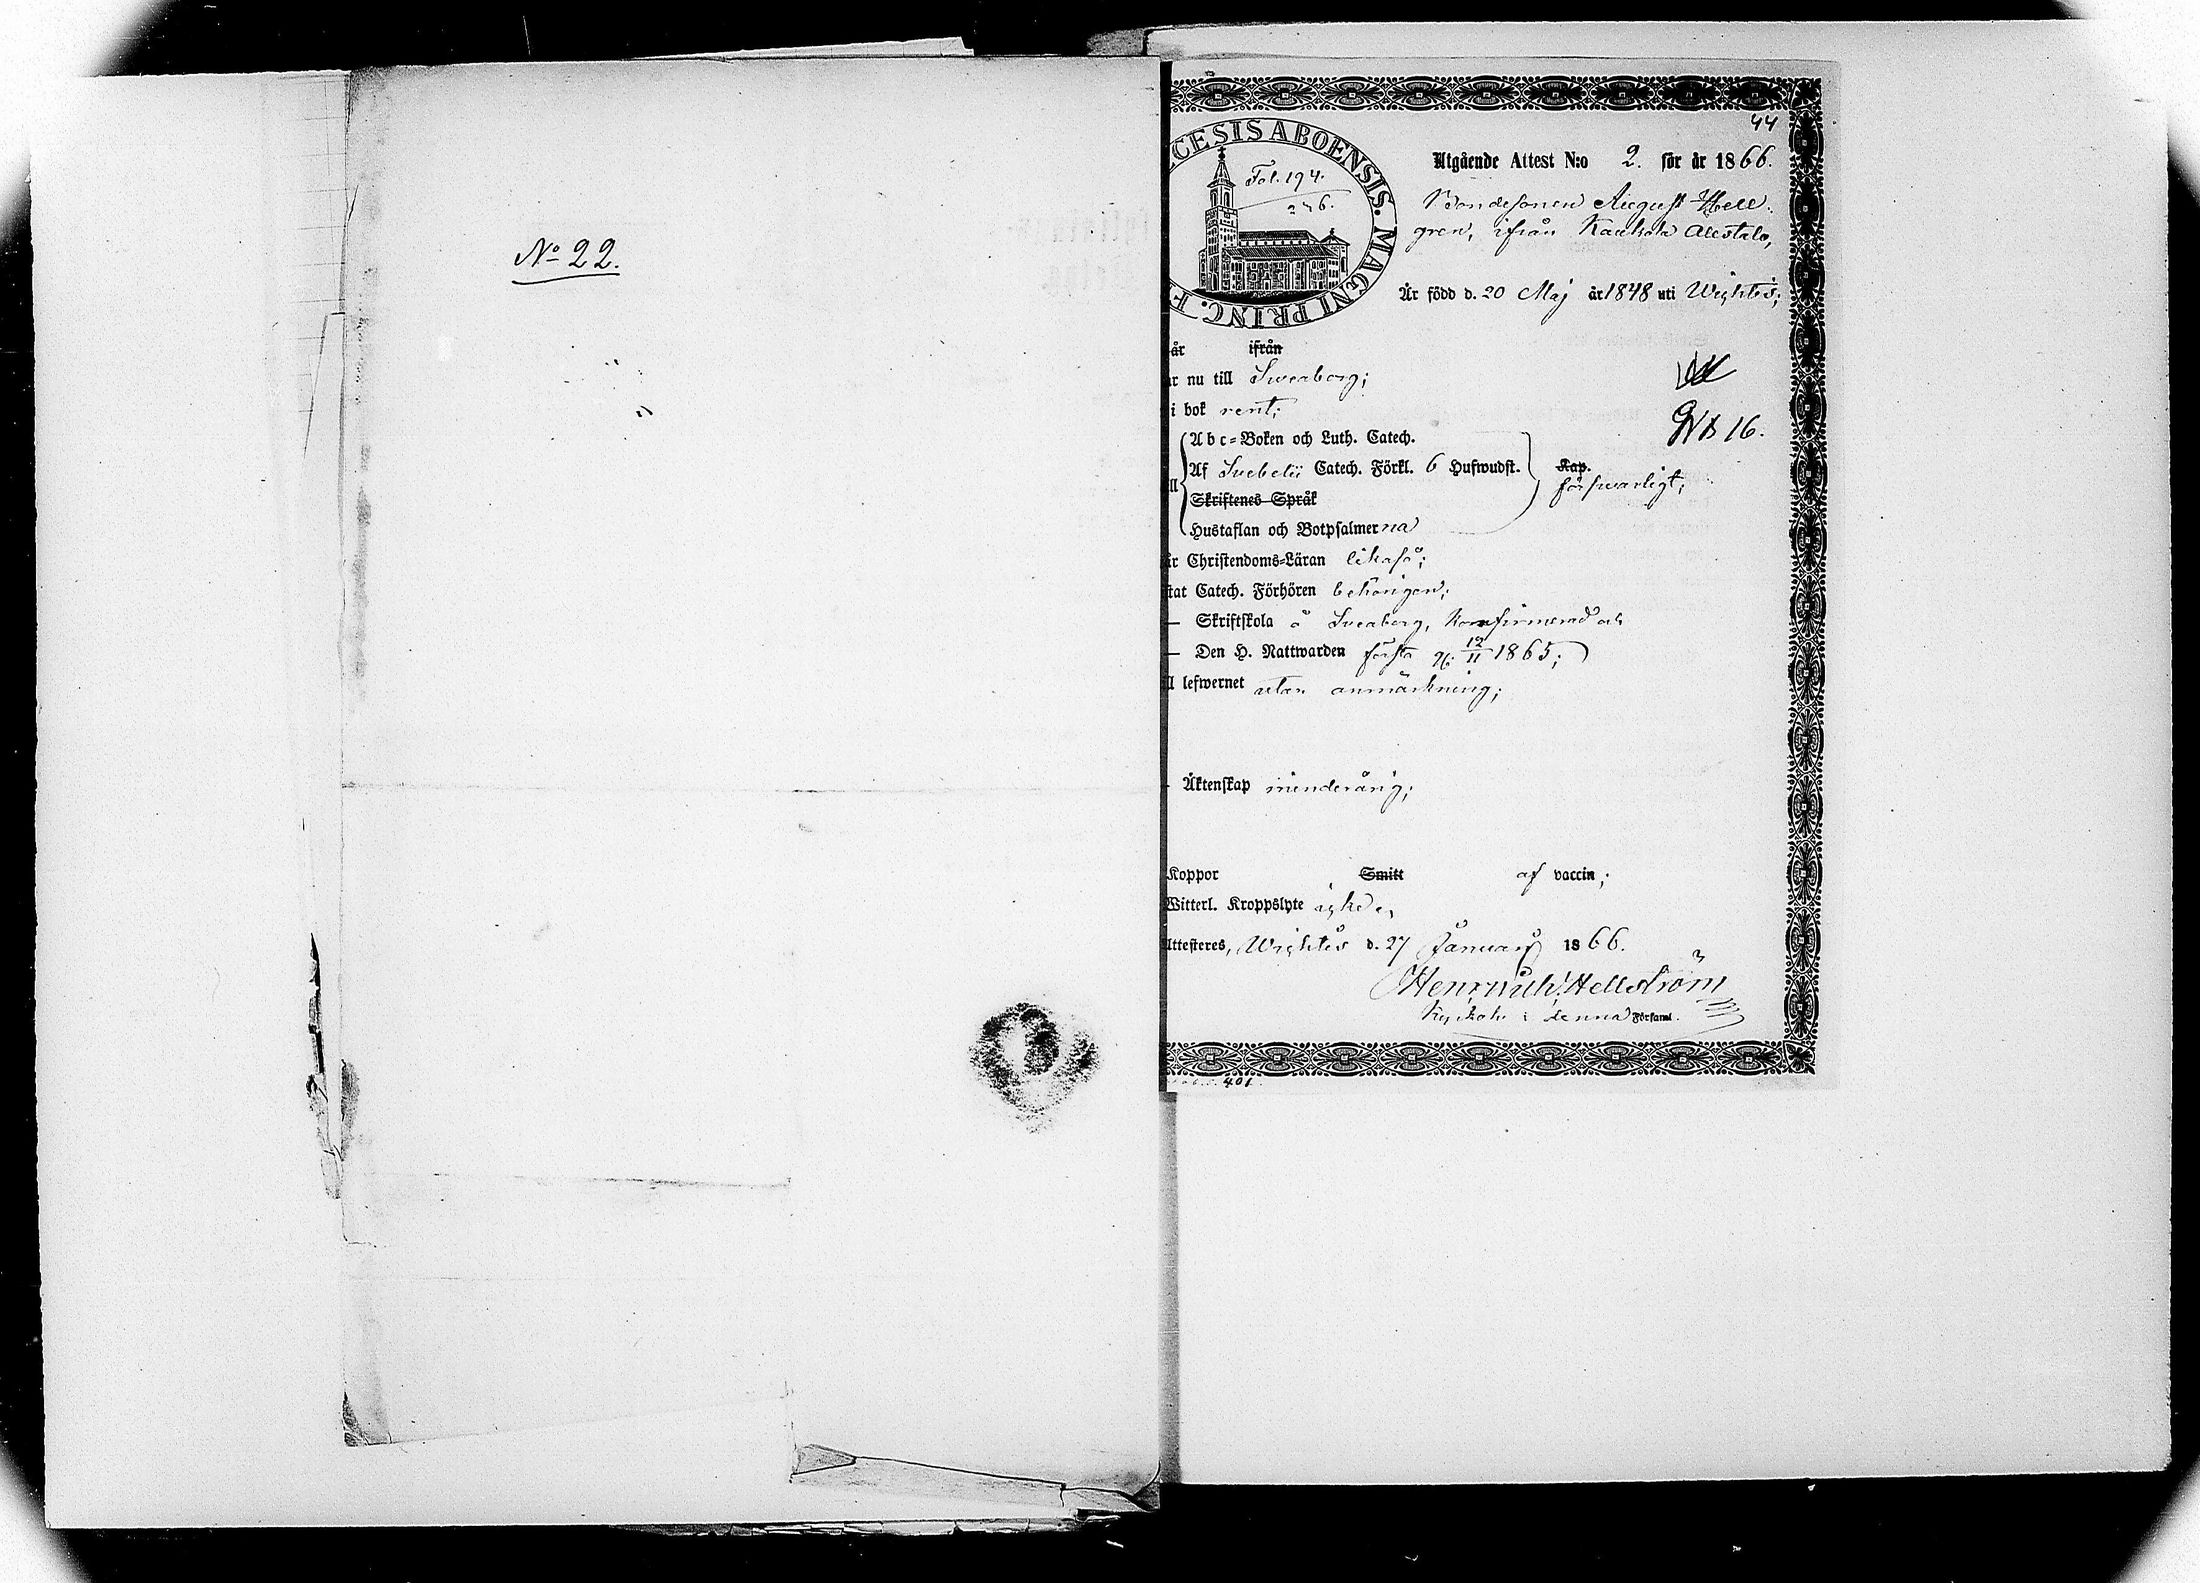 No 22.
44
CESIS ABOENSIS. MAGNI PRINC. F
Fol. 194.
276.
Utgående Attest N:o 2. för år 1866.
Bondesonen August Hell-
gren, ifrån Kaukola Alestalo,
Är född d. 20 Maj år 1848 uti Wichtis;
är ifrån
ar nu till Sveaborg;
i bok rent;
Abc-Boken och Luth. Catech.
Af Svebelii Catech. Förkl. 6 Hufwudst. Kap.
ll försvarligt;
Skriftenes Språk
Hustaflan och Botpsalmerna
är Christendoms-Läran likaså;
stat Catech. Förhören behörigen;
— Skriftskola å Sveaborg, konfirmerad och
— Den H. Nattwarden första g: 12/11 1865;
ll lefwernet utan anmärkning;
N:o 16.
- Äktenskap minderårig;
Koppor Smitt af vaccin;
Witterl. Kroppslyte icke.
Attesteres, Wichtis d. 27 Januari 1866.
Henrik Hellström
Kyrkoh: i denna Församl.
401.